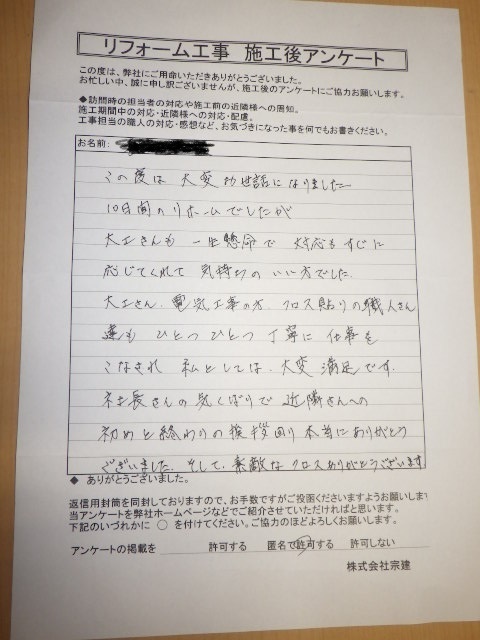 リフォーム工事 施工後アンケート
この度は、弊社にご用命いただきありがとうございました。
お忙しい中、誠に申し訳ございませんが、施工後のアンケートにご協力お願いします。
◆訪問時の担当者の対応や施工前の近隣様への周知。
施工期間中の対応・近隣様への対応・配慮。
工事担当の職人の対応・感想など、お気づきになった事を何でもお書きください。
お名前:
この度は 大変お世話になりました
10日間のリホームでしたが
大工さんも 一生懸命で 対応もすぐに
応じてくれて 気持ちの いい方でした。
大工さん、電気工事の方、クロス貼りの職人さん
達も ひとつひとつ 丁寧に 仕事を
こなされ 私としては、大変 満足です。
社長さんの気くばりで 近隣さんへの
初めと終わりの挨拶回り 本当にありがとう
ございました。そして、素敵なクロスありがとうございます
◆ ありがとうございました。
返信用封筒を同封しておりますので、お手数ですがご投函くださいますようお願いしま
当アンケートを弊社ホームページなどでご紹介させていただければと思います。
下記のいづれかに 〇 を付けてください。ご協力のほどよろしくお願いします。
アンケートの掲載を 許可する 匿名で許可する 許可しない
株式会社宗建